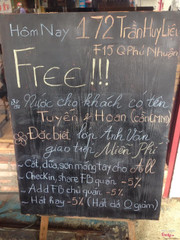 Hôm Nay 172 Trần Huy Liệu
F15 Q Phú Nhuận
Free !!!
Nước cho khách có tên
Tuyền + Hoan (cần CMND)
Đặc biệt lớp Anh Văn
giao tiếp Miễn Phí
- Cat, dưa, son móng tay cho
- Checkin, share FB quán -5%
- Add FB chủ quán -5%
- Hát hay -5% (Hát dở 0 giảm)